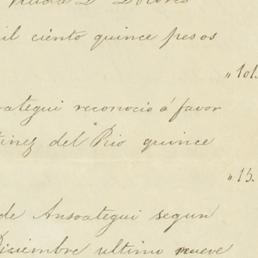 D. Dolores
mil ciento quince pesos
" 101.
oategui reconoció á favor
tinez del Rio quince
" 15.
de Ansoategui segun
Diciembre ultimo nueve